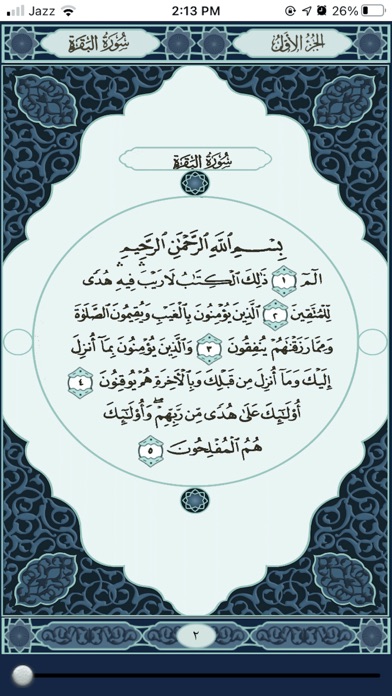 Jazz 2:13 PM 26%
سُورَةُ البَقَرَةِ الجُزءُ الأَوَّلُ
سُورَةُ البَقَرَةِ
بِسْمِ اللَّهِ الرَّحْمَٰنِ الرَّحِيمِ
الٓمٓ ١ ذَٰلِكَ الْكِتَابُ لَا رَيْبَ ۛ فِيهِ ۛ هُدًى
لِّلْمُتَّقِينَ ٢ الَّذِينَ يُؤْمِنُونَ بِالْغَيْبِ وَيُقِيمُونَ الصَّلَاةَ
وَمِمَّا رَزَقْنَاهُمْ يُنفِقُونَ ٣ وَالَّذِينَ يُؤْمِنُونَ بِمَا أُنزِلَ
إِلَيْكَ وَمَا أُنزِلَ مِن قَبْلِكَ وَبِالْآخِرَةِ هُمْ يُوقِنُونَ ٤
أُولَٰئِكَ عَلَىٰ هُدًى مِّن رَّبِّهِمْ ۖ وَأُولَٰئِكَ
هُمُ الْمُفْلِحُونَ ٥
٢